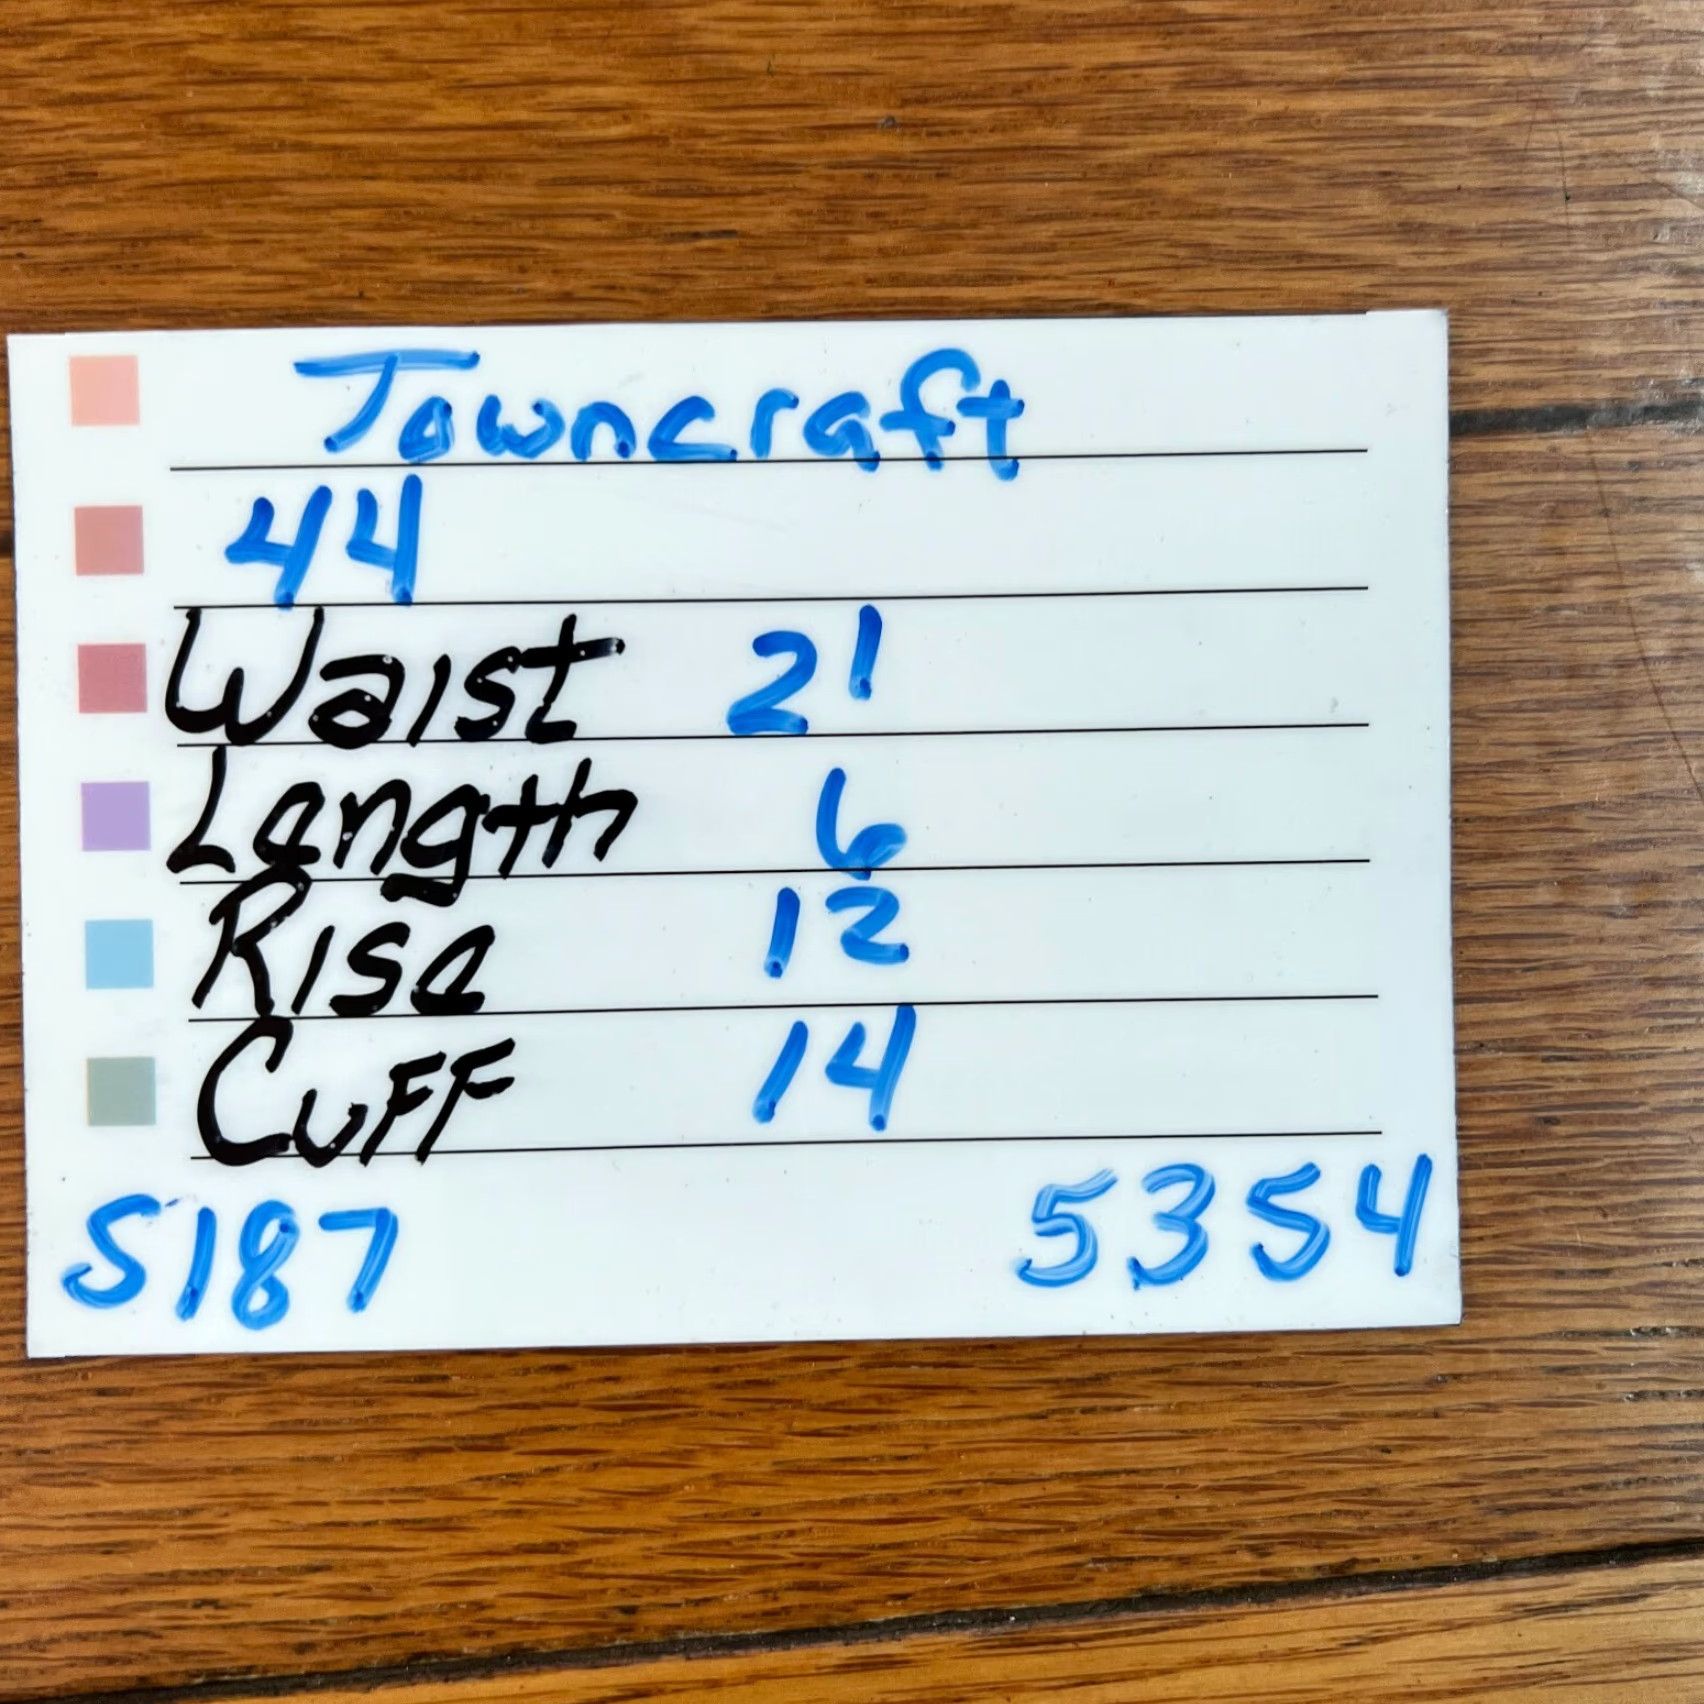 Towncraft
44
Waist 21
Length 6
Rise 12
Cuff 14
S187 5354